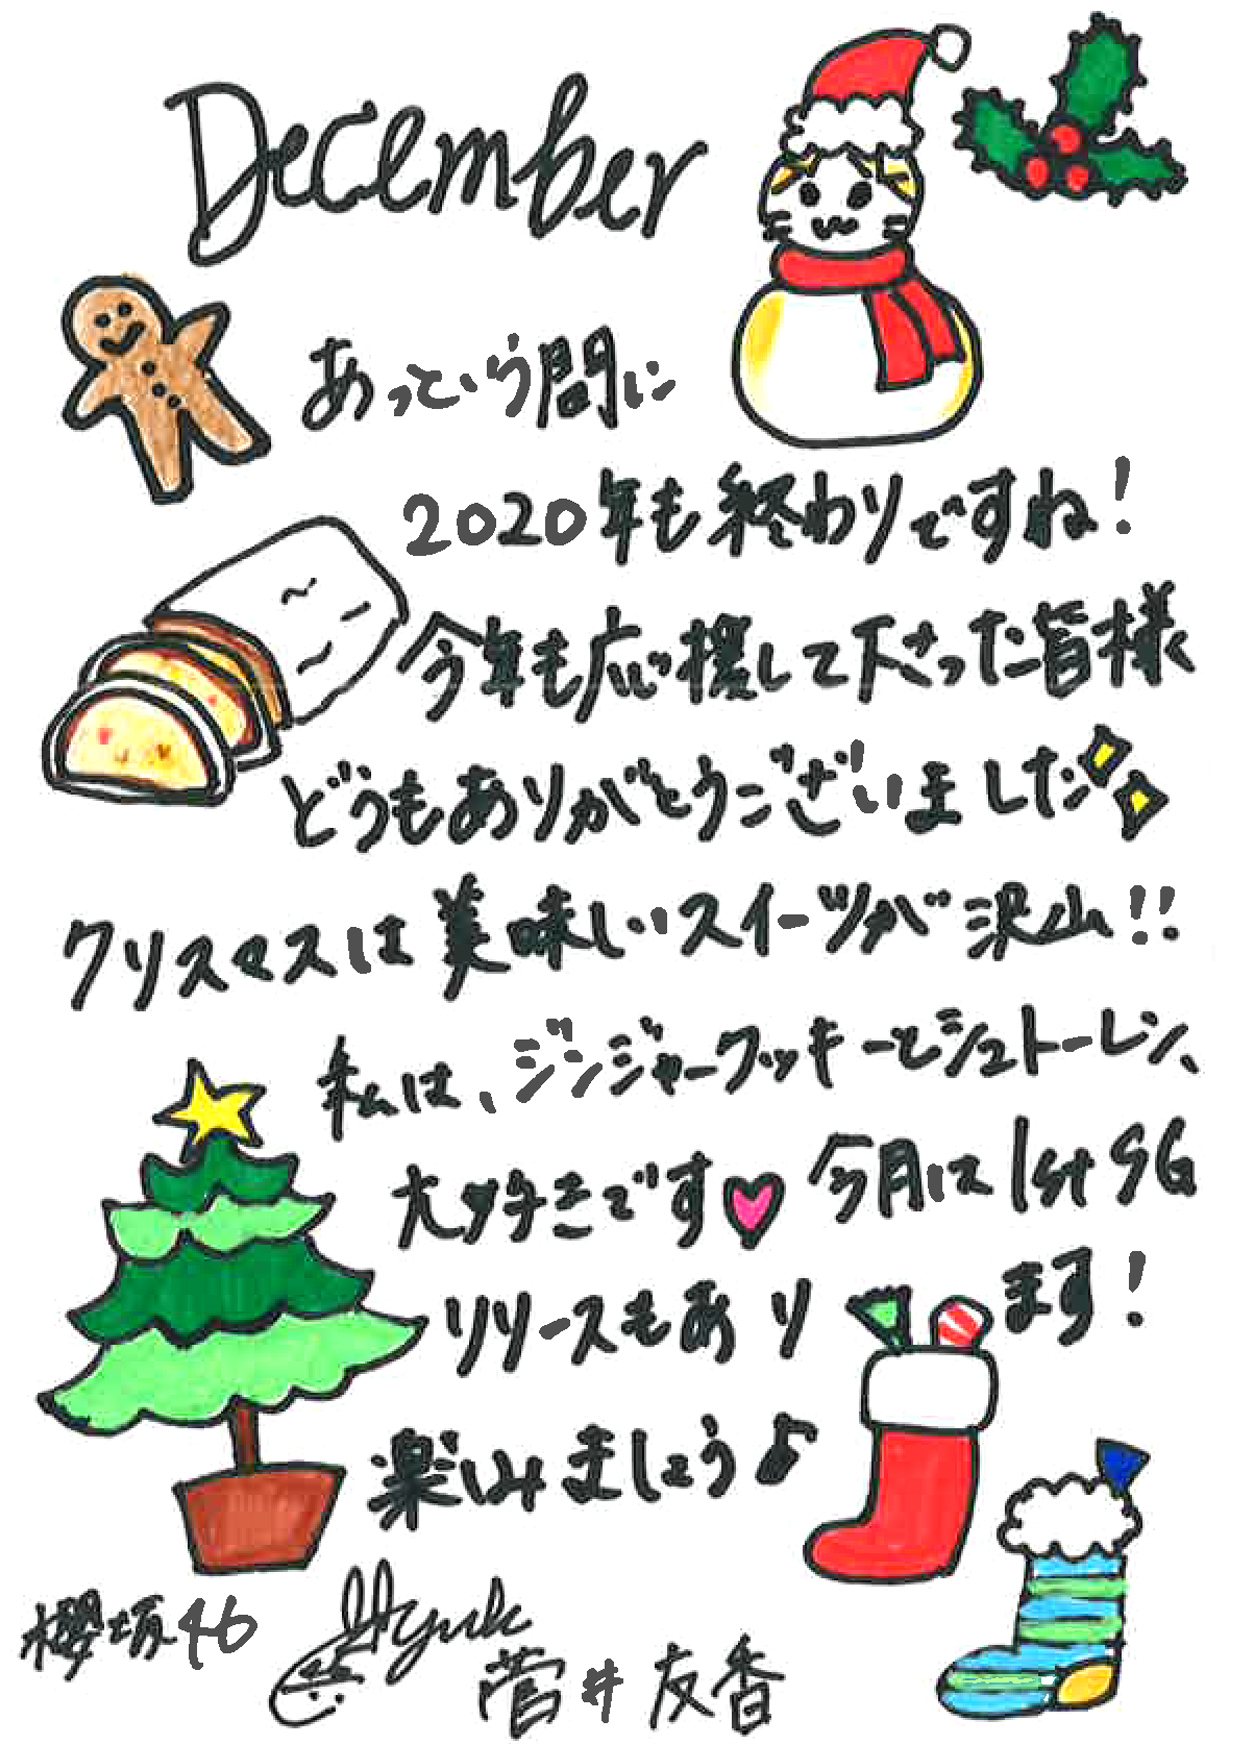 December
あっという間に
2020年も終わりですね!
今年も応援して下さった皆様
どうもありがとうございました
クリスマスは美味しいスイーツが沢山!!
私は、ジンジャークッキーとシュトーレン、
大好きです♥ 今月は1stSG
リリースもあります!
楽しみましょう♪
櫻坂46
菅井友香